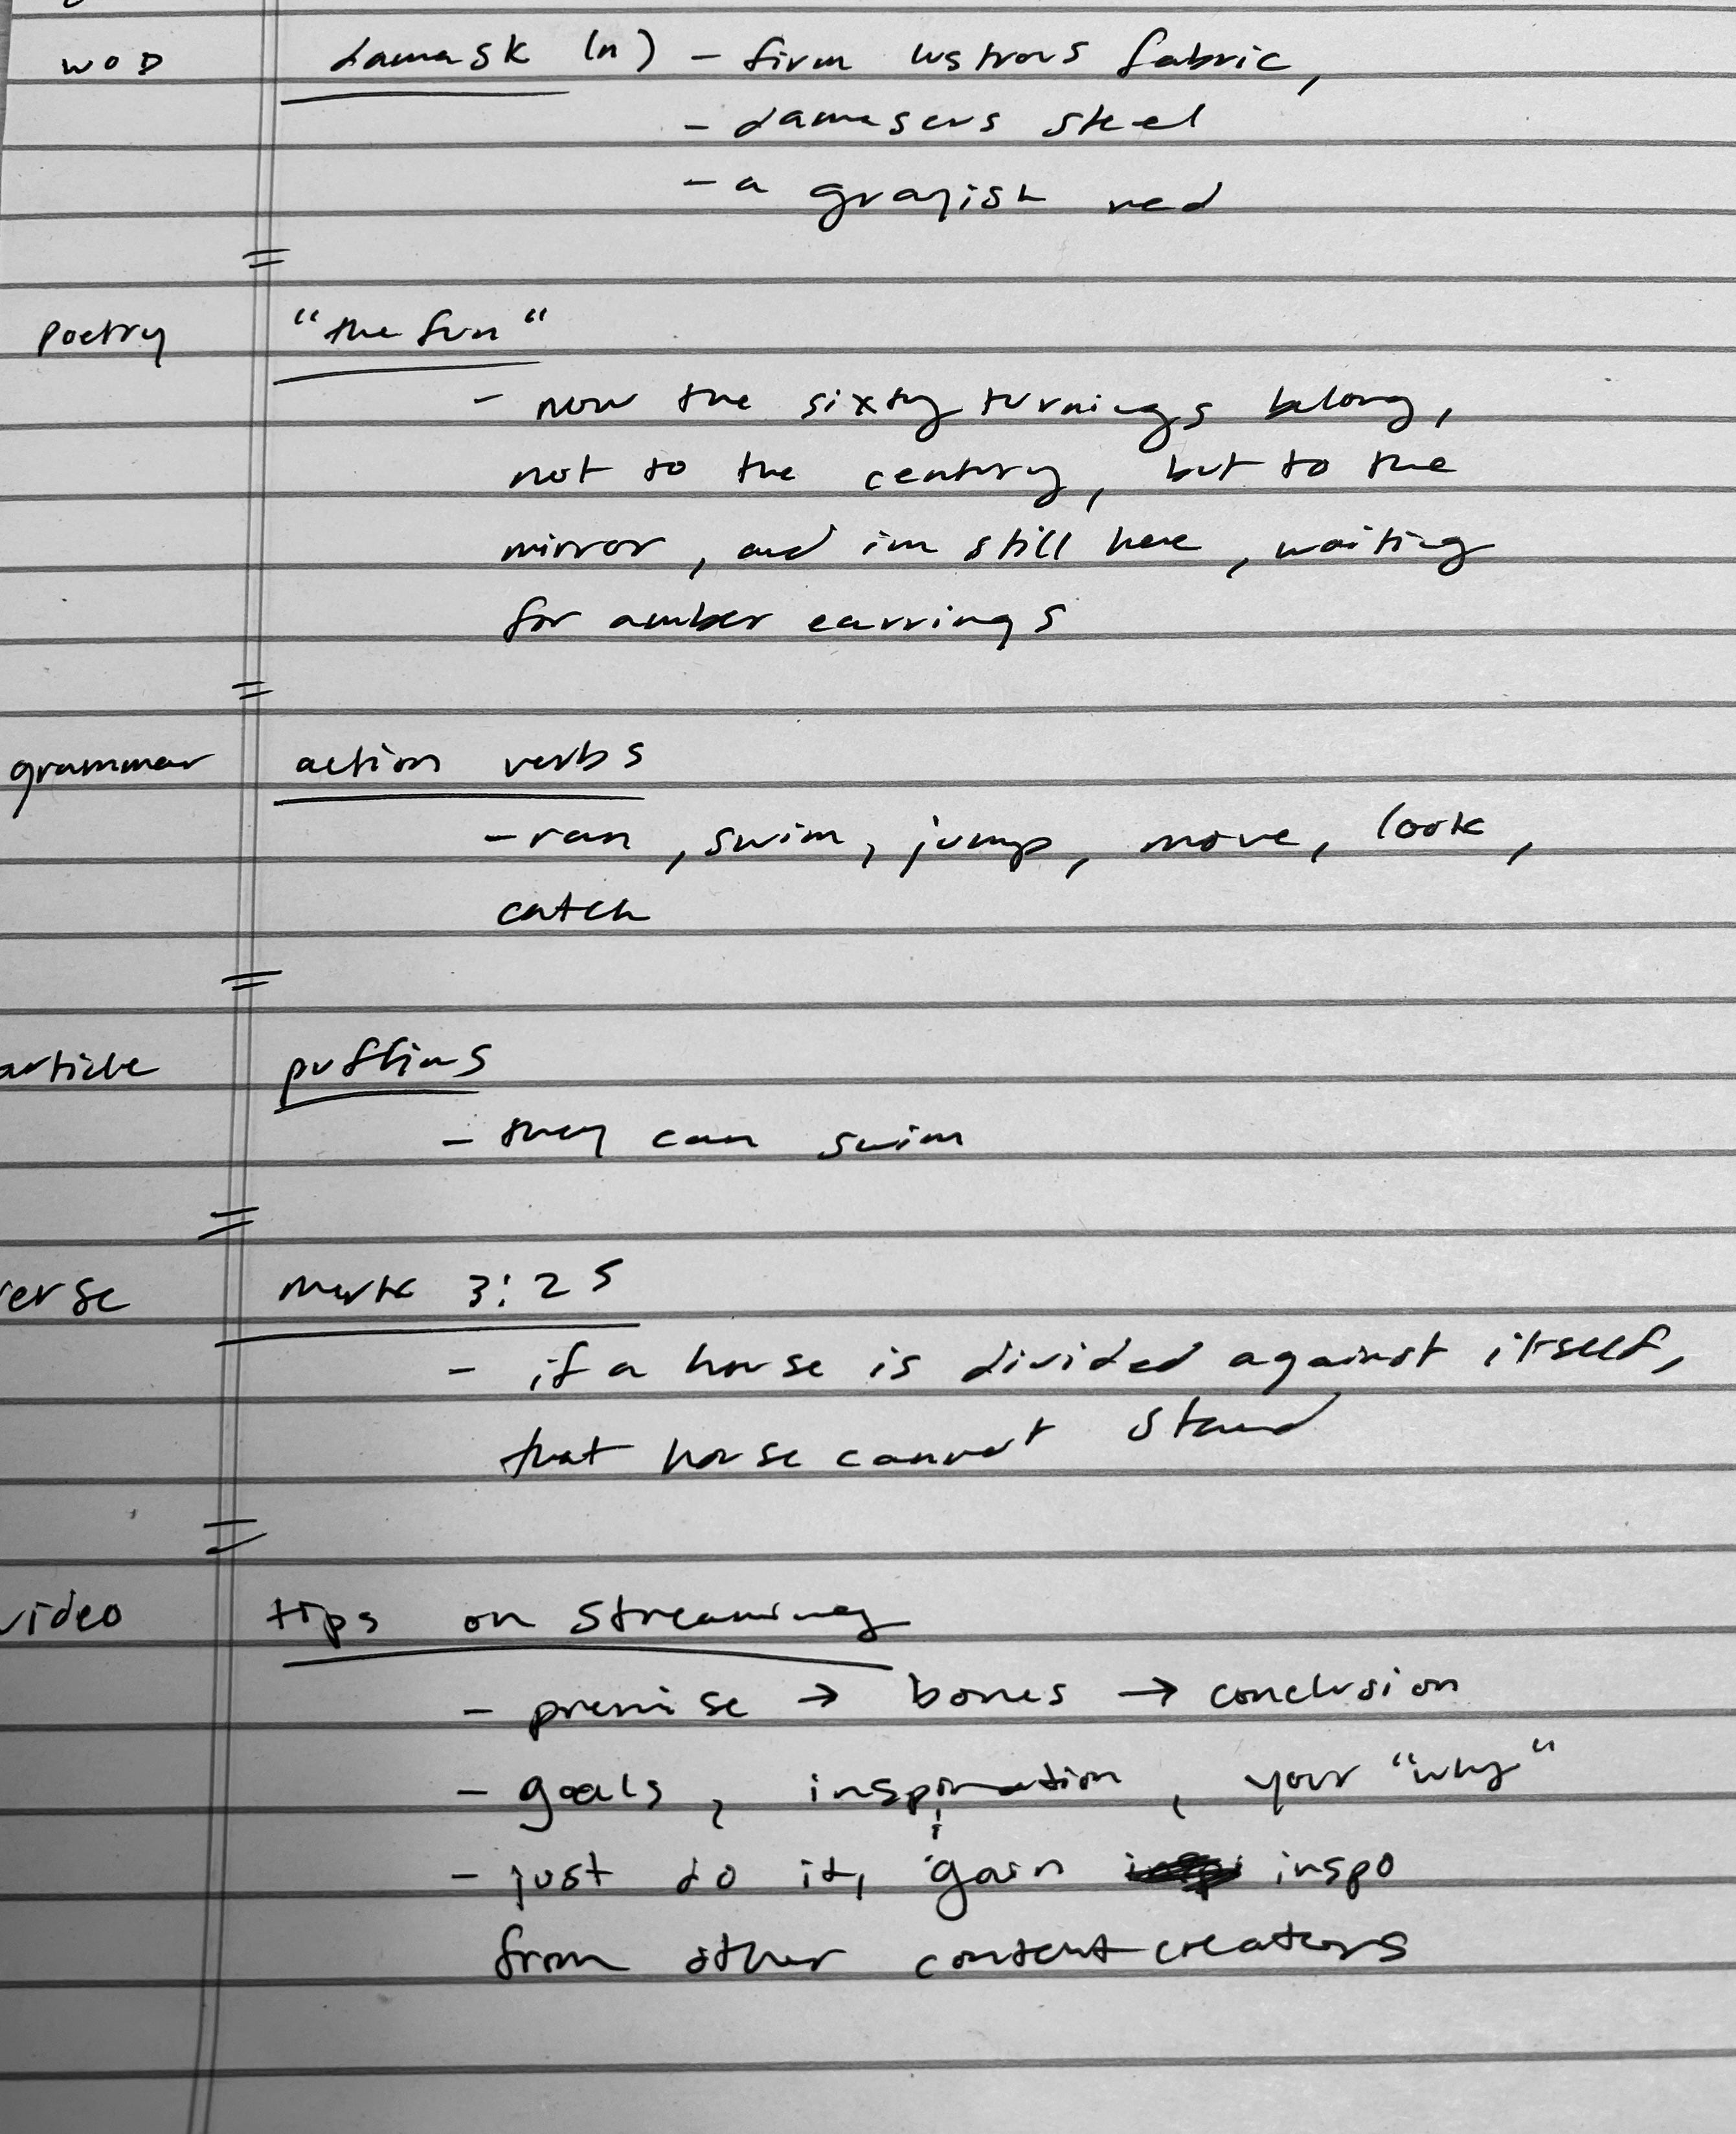 WOD damask (n) - firm lustrous fabric,
- damascus steel
- a grayish red
=
Poetry "the sun"
- now the sixty turnings belong,
not to the century, but to the
mirror, and im still here, waiting
for amber earrings
=
grammar action verbs
- ran, swim, jump, move, look,
catch
=
article puffins
- they can swim
=
verse mark 3:25
- if a house is divided against itself,
that house cannot stand
=
video tips on streaming
- premise → bones → conclusion
- goals, inspiration, your "why"
- just do it, gain inspo
from other content creators